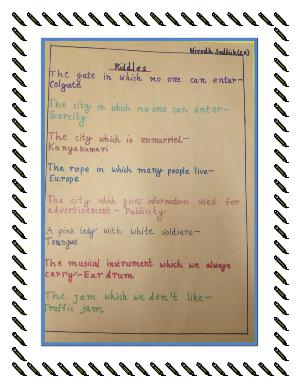 Nivedh Sadhik(2A)
Riddles
The gate in which no one can enter-
Colgate
The city in which no one can enter-
Scarcity
The city which is unmarried-
Kanyakumari
The rope in which many people live-
Europe
The city which gives information used for
advertisement - Publicity
A pink lady with white soldiers-
Toungue
The musical instrument which we always
carry-Ear drum
The jam which we don't like-
Traffic jam